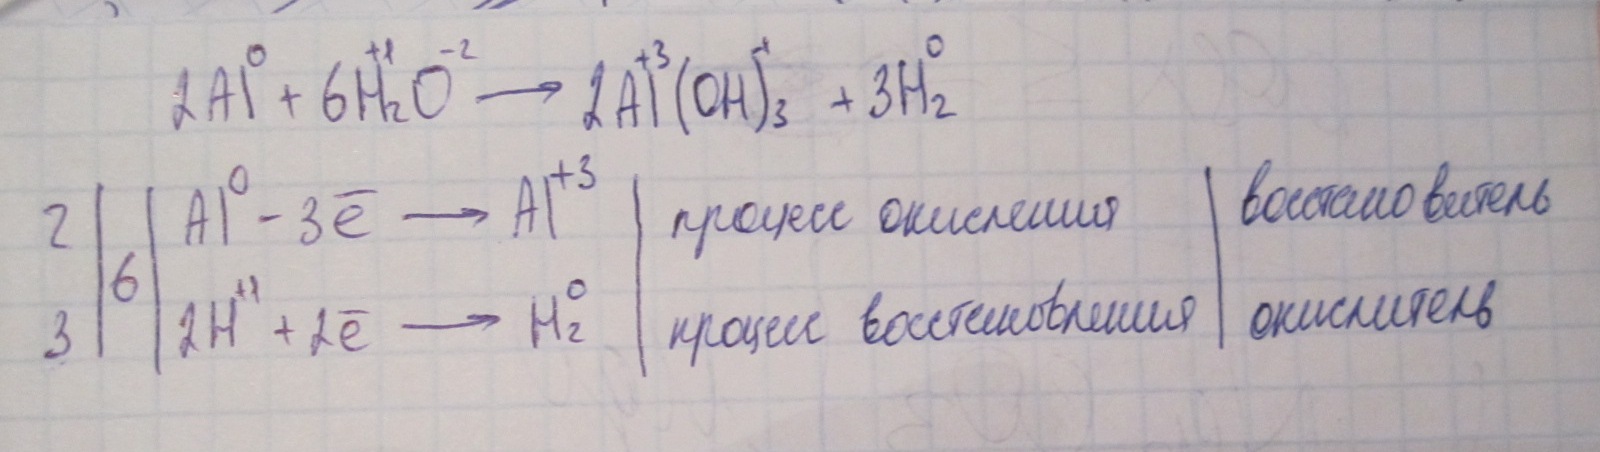 2Al⁰ + 6H₂⁺¹O⁻² → 2Al⁺³(OH)₃⁻¹ + 3H₂⁰
2 | 6 | Al⁰ - 3ē → Al⁺³ | процесс окисления | восстановитель
3 | | 2H⁺¹ + 2ē → H₂⁰ | процесс восстановления | окислитель